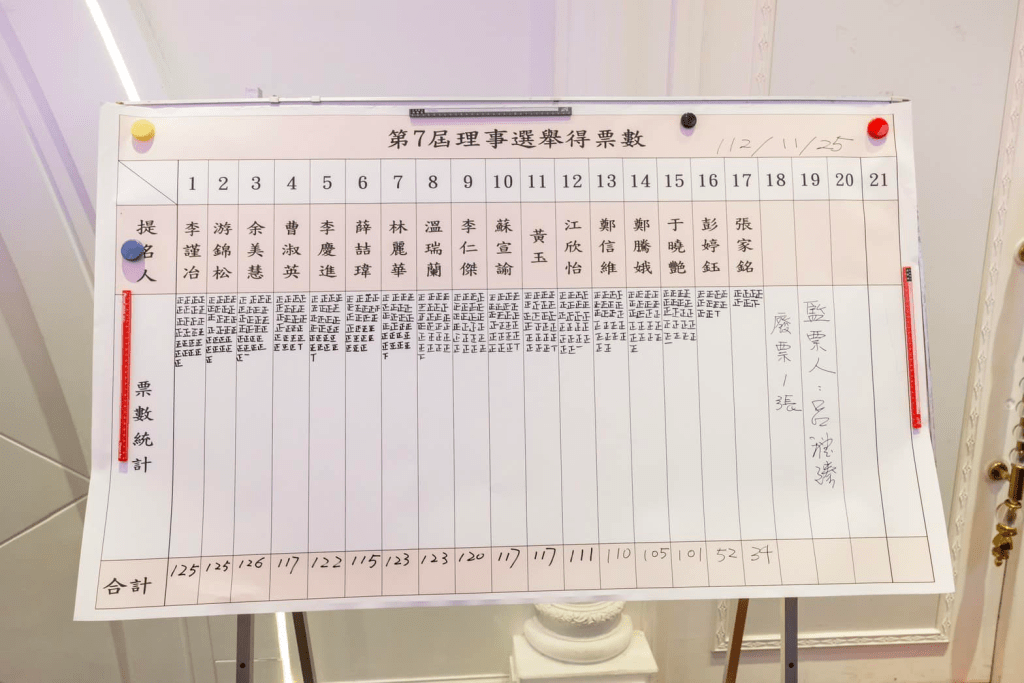 第7屆理事選舉得票數
112/11/25
1 2 3 4 5 6 7 8 9 10 11 12 13 14 15 16 17 18 19 20 21
提名人 李謹冶 游錦松 余美慧 曹淑英 李慶進 薛喆瑋 林麗華 溫瑞蘭 李仁傑 蘇宣諭 黃玉 江欣怡 鄭信維 鄭騰娥 于曉艷 彭婷鈺 張家銘
票數統計
廢票1張
監票人:呂
合計 125 125 126 117 122 115 123 123 120 117 117 111 110 105 101 52 34